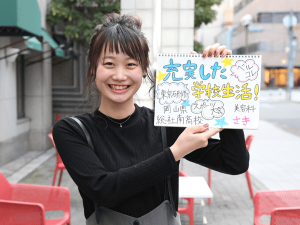 充実した
学校生活!
岡山県
総社南高校
美容科
さき